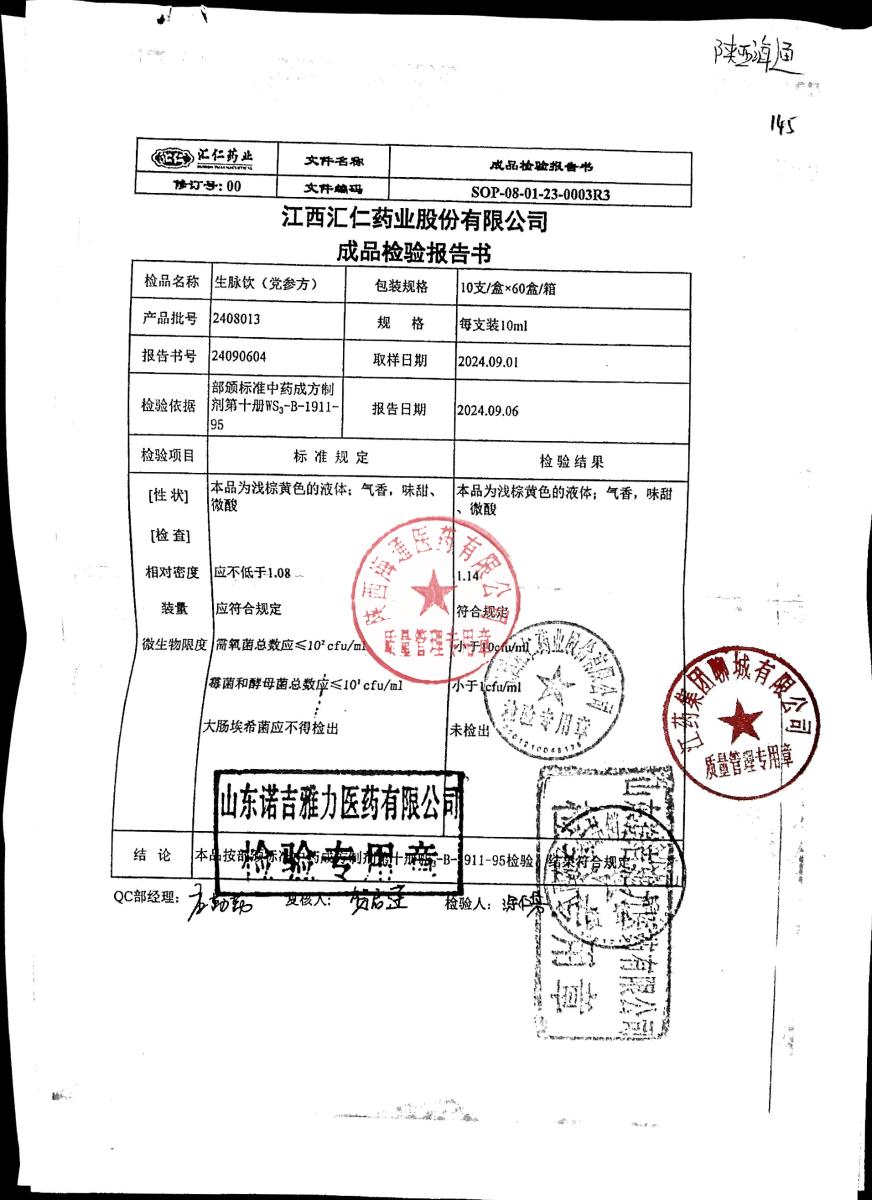 陕西海通
145
汇仁药业 文件名称 成品检验报告书
修订号: 00 文件编码 SOP-08-01-23-0003R3
江西汇仁药业股份有限公司
成品检验报告书
检品名称 生脉饮（党参方） 包装规格 10支/盒×60盒/箱
产品批号 2408013 规 格 每支装10ml
报告书号 24090604 取样日期 2024.09.01
检验依据 部颁标准中药成方制
剂第十册WS₃-B-1911-
95
报告日期 2024.09.06
检验项目 标 准 规 定 检 验 结 果
[性 状] 本品为浅棕黄色的液体；气香，味甜、
微酸
本品为浅棕黄色的液体；气香，味甜
、微酸
[检 查]
相对密度 应不低于1.08 1.14
装量 应符合规定 符合规定
微生物限度 需氧菌总数应≤10²cfu/ml 小于10cfu/ml
霉菌和酵母菌总数应≤10¹cfu/ml 小于1cfu/ml
大肠埃希菌应不得检出 未检出
陕西海通医药有限公司
质量管理专用章
江药集团聊城有限公司
质量管理专用章
山东诺吉雅力医药有限公司
检验专用章
结 论 本品按部颁标准中药成方制剂第十册WS₃-B-1911-95检验，结果符合规定
QC部经理： 复核人： 检验人：
山东诺吉雅力医药有限公司
检验专用章